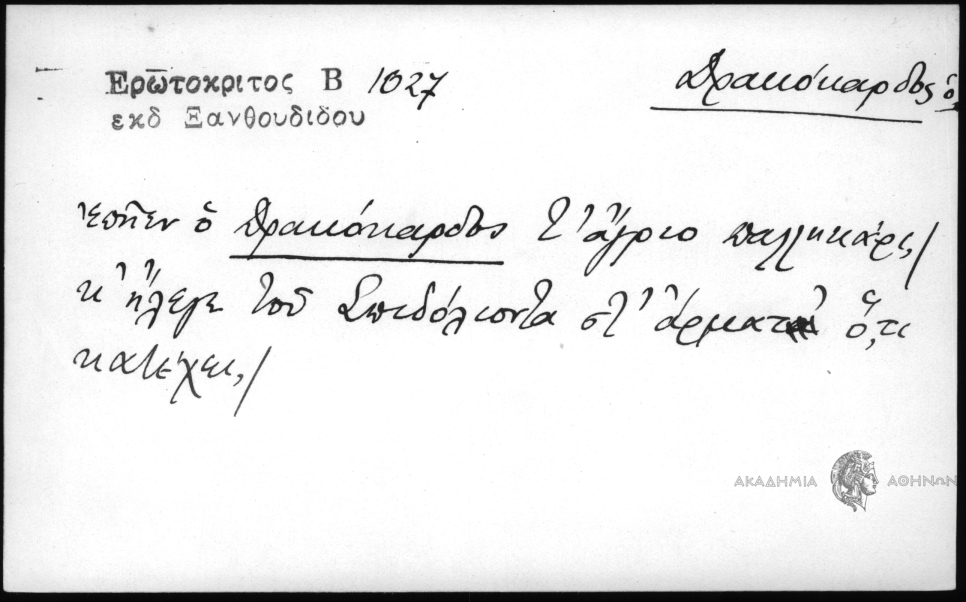 Ερωτοκριτος Β 1027
εκδ Ξανθουδιδου
Δρακόκαρδος ὁ
Ἐπῆεν ὁ Δρακόκαρδος τ' ἄγριο παλληκάρι,/
κ' ἤλεγε τοῦ Σπιδόλιοντα στ' ἄρματ' ὅ,τι
κατέχει,/
ΑΚΑΔΗΜΙΑ ΑΘΗΝΩΝ